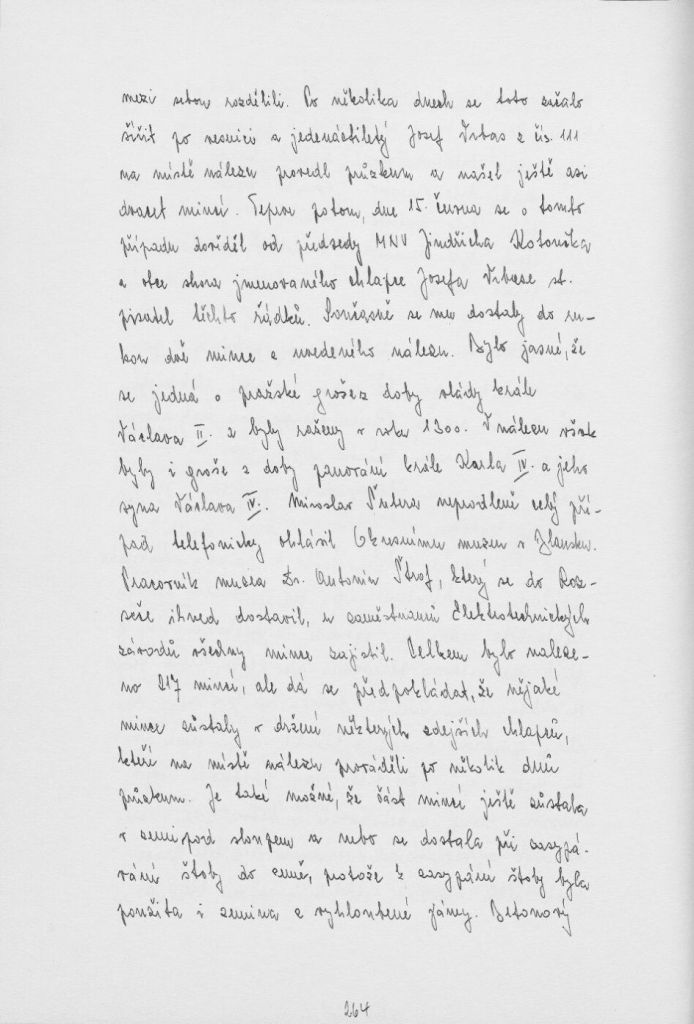 mezi sebou rozdělili. Po několika dnech se toto začalo
šířit po vesnici a jedenáctiletý Josef Vrbas z čís. 111
na místě nálezu provedl průzkum a našel ještě asi
dvacet mincí. Teprve potom, dne 15. června se o tomto
případu dověděl od předsedy MNV Jindřicha Kotoučka
a otce shora jmenovaného chlapce Josefa Vrbase st.
pisatel těchto řádků. Současně se mu dostaly do ru-
kou dvě mince z uvedeného nálezu. Bylo jasné, že
se jedná o pražské groše z doby vlády krále
Václava II. a byly raženy v roku 1300. V nálezu však
byly i groše z doby panování krále Karla IV. a jeho
syna Václava IV. Miroslav neprodleně celý pří-
pad telefonicky ohlásil Okresnímu muzeu v Blansku.
Pracovník muzea Dr. Antonín Štrof, který se do Roz-
seče ihned dostavil, u zaměstnanců Elektrotechnických
závodů všechny mince zajistil. Celkem bylo naleze-
no 217 mincí, ale dá se předpokládat, že nějaké
mince zůstaly v držení některých zdejších chlapců,
kteří na místě nálezu prováděli po několik dnů
průzkum. Je také možné, že část mincí ještě zůstala
v zemi pod sloupem a nebo se dostala při zasypá-
vání štoly do země, protože k zasypání štoly byla
použita i zemina z vyhloubené jámy. Betonový
264